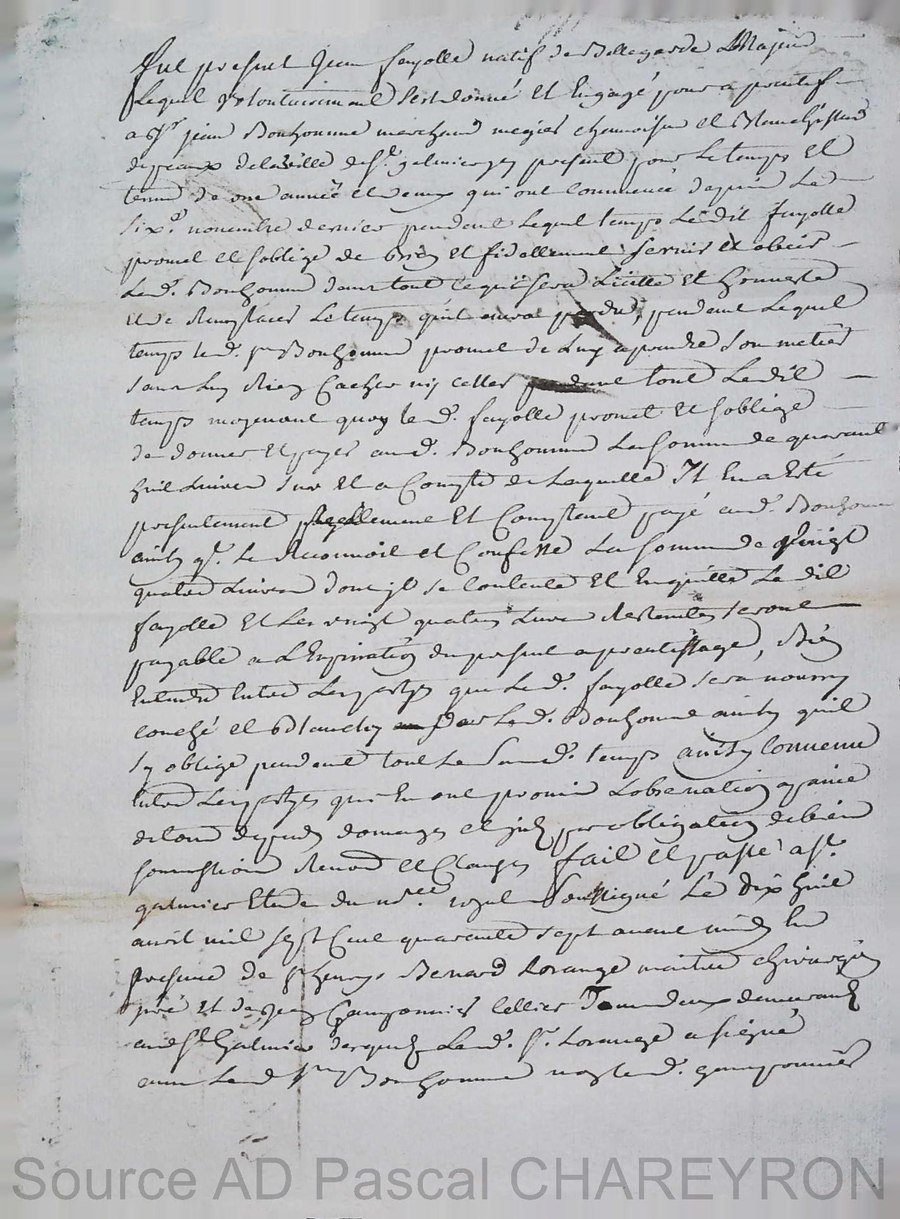 fut present Jean fayolle natif de Bellegarde Majeur
Lequel volontairement s'est donné et Engagé pour aprentif
a Sr. jean Bonhomme marchand megier chamoiseur et Blanchisseur
de peaux de la ville de St. galmier present pour Le temps Et
terme de une année et qui ont Commencé depuis Le
six. novembre dernier pendent Lequel temps Ledit fayolle
promet et soblige de bien Et fidellement servir et obeir
Led. Bonhomme dans tout ce qui sera Licitte Et honneste
Et de Remplacer Le temps quil aura perdu, pendent Lequel
temps led. sr Bonhomme promet de Luy aprendre son metier
sans Luy Rien Cacher ny celler tout Ledit
temps moyenant quoy led. fayolle promet Et soblige
de donner Et payer aud. Bonhomme La somme de quarant
huit Livres sur Et a Compte de Laquelle Il En a Esté
presentement Rellement Et Comptent payé aud. Bonhomme
ainsy qt. le Reconnoit et Confesse La somme de vingt
quatre Livres dont jl se Contente Et En quitte Ledit
fayolle Et Les vingt quatre Livres Restantes seront
payable a L'Expiration du present aprentissage, Bien
Entendu Entre Les partyes que Led. fayolle sera nourry
couché et Blanchy par Led. Bonhomme ainsy quil
sy oblige pendent tout Le susd. temps ainsy Convenu
Entre Les partyes qui En ont promis Lobservation a paine
de tous depens domages et par obligation de biens
soumission Renon et Clauses fait et passé a St.
galmier Etude du nore. royal soussigné Le dix huit
avril mil sept Cent quarante sept avant midy En
presence de Sr Benard Lorange maitre chirurgien
juré Et de jean Camponnier sellier Tous deux demeurant
aud St. Galmier desquels Led. Sr. Lorange a signé
avec Led Sr Bonhomme non led. Camponnier
Source AD Pascal CHAREYRON